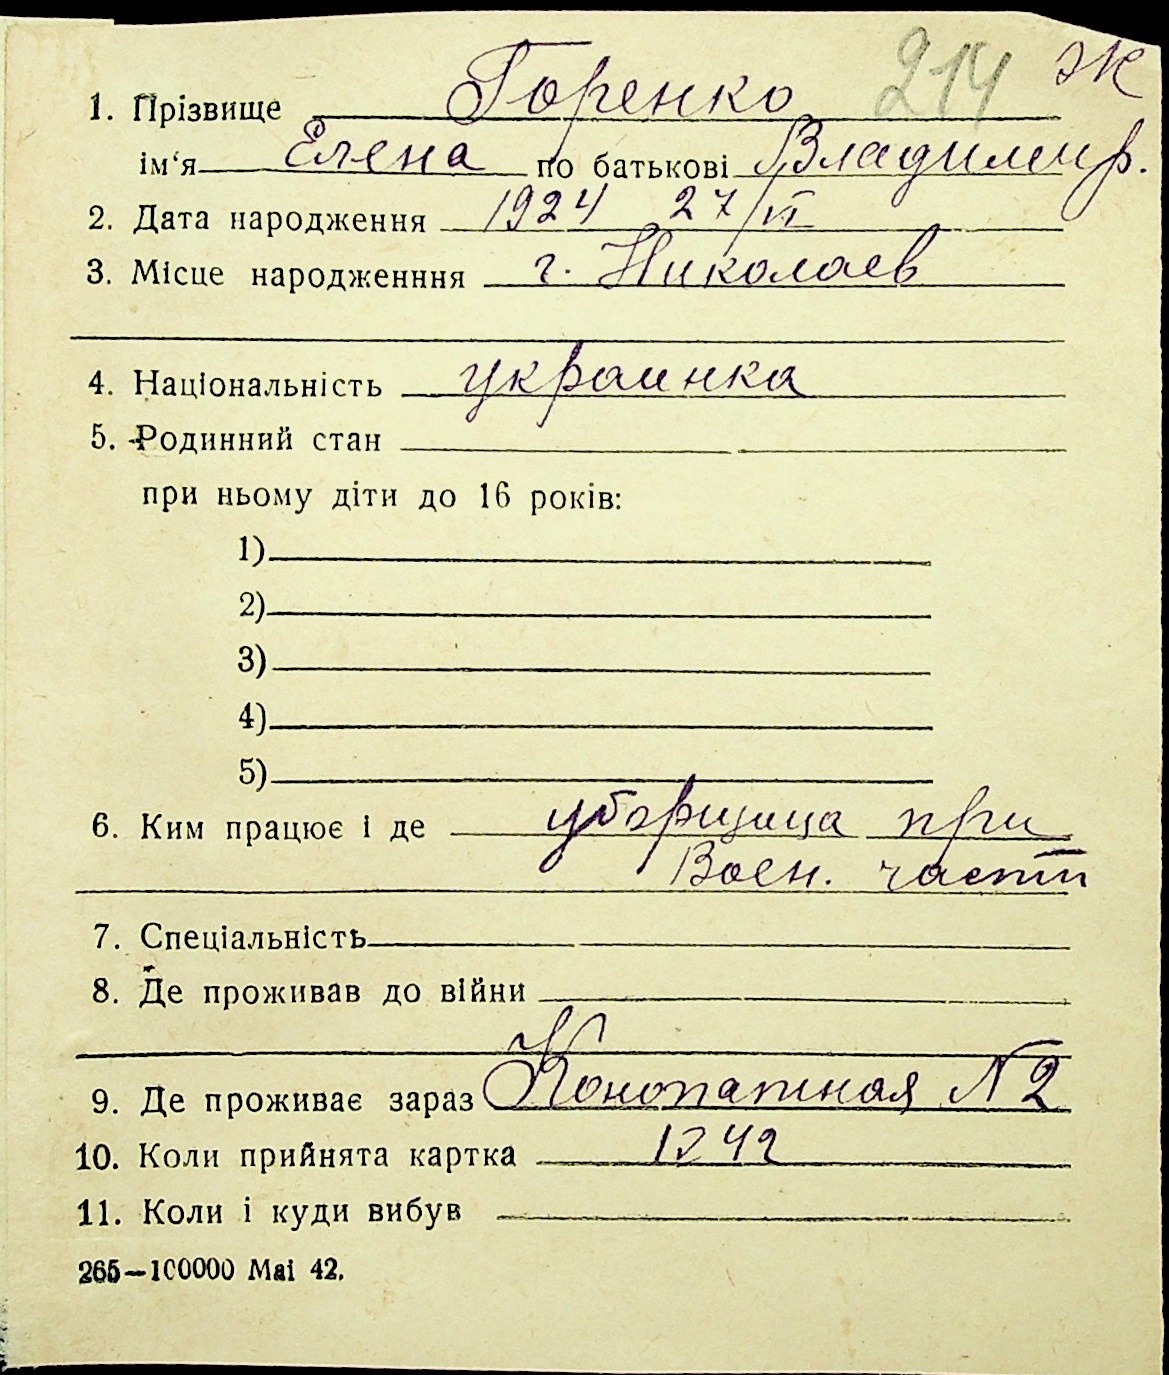 214 Ж
1. Прізвище Горенко
ім‘я Елена по батькові Владимир.
2. Дата народження 1924 27/VI
3. Місце народженння г. Николаев
4. Національність украинка
5. Родинний стан
при ньому діти до 16 років:
1)
2)
3)
4)
5)
6. Ким працює і де уборщица при
Воен. части
7. Спеціальність
8. Де проживав до війни
9. Де проживає зараз Конопатная N 2
10. Коли прийнята картка 1942
11. Коли і куди вибув
265—100000 Mai 42.